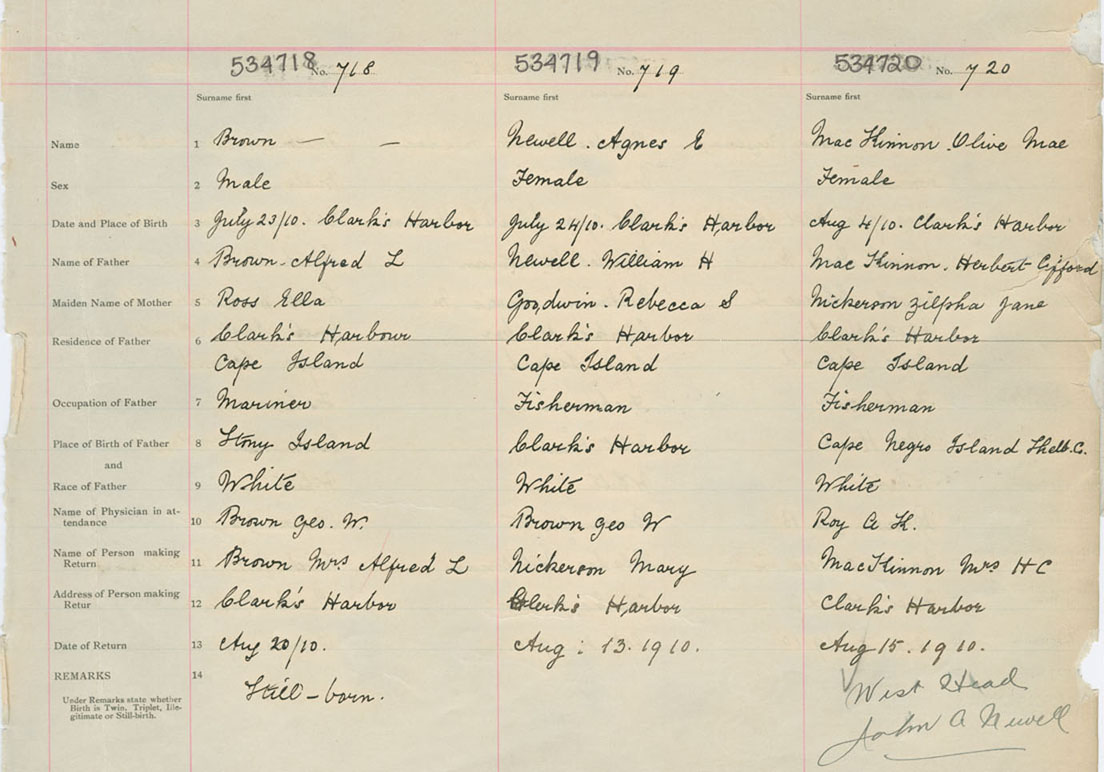 534718 No. 718 534719 No. 719 534720 No. 720
Surname first Surname first Surname first
Name 1 Brown — — Newell . Agnes E Mac Kinnon . Olive Mae
Sex 2 Male Female Female
Date and Place of Birth 3 July 23/10. Clark's Harbor July 24/10. Clark's Harbor Aug 4/10. Clark's Harbor
Name of Father 4 Brown - Alfred L Newell . William H Mac Kinnon . Herbert Gifford
Maiden Name of Mother 5 Ross Ella Goodwin . Rebecca S Nickerson Zilpha Jane
Residence of Father 6 Clark's Harbour Clark's Harbor Clark's Harbor
Cape Island Cape Island Cape Island
Occupation of Father 7 Mariner Fisherman Fisherman
Place of Birth of Father 8 Stony Island Clark's Harbor Cape Negro Island Shelb. Co.
and
Race of Father 9 White White White
Name of Physician in at-
tendance 10 Brown Geo. W. Brown Geo W Roy A K.
Name of Person making
Return 11 Brown Mrs Alfred L Nickerson Mary MacKinnon Mrs H C
Address of Person making
Retur 12 Clark's Harbor Clerk's Harbor Clark's Harbor
Date of Return 13 Aug 20/10. Aug : 13. 1910. Aug 15. 1910.
REMARKS 14 Still - born. West Head
Under Remarks state whether
Birth is Twin, Triplet, Ille-
gitimate or Still-birth.
John A Newell